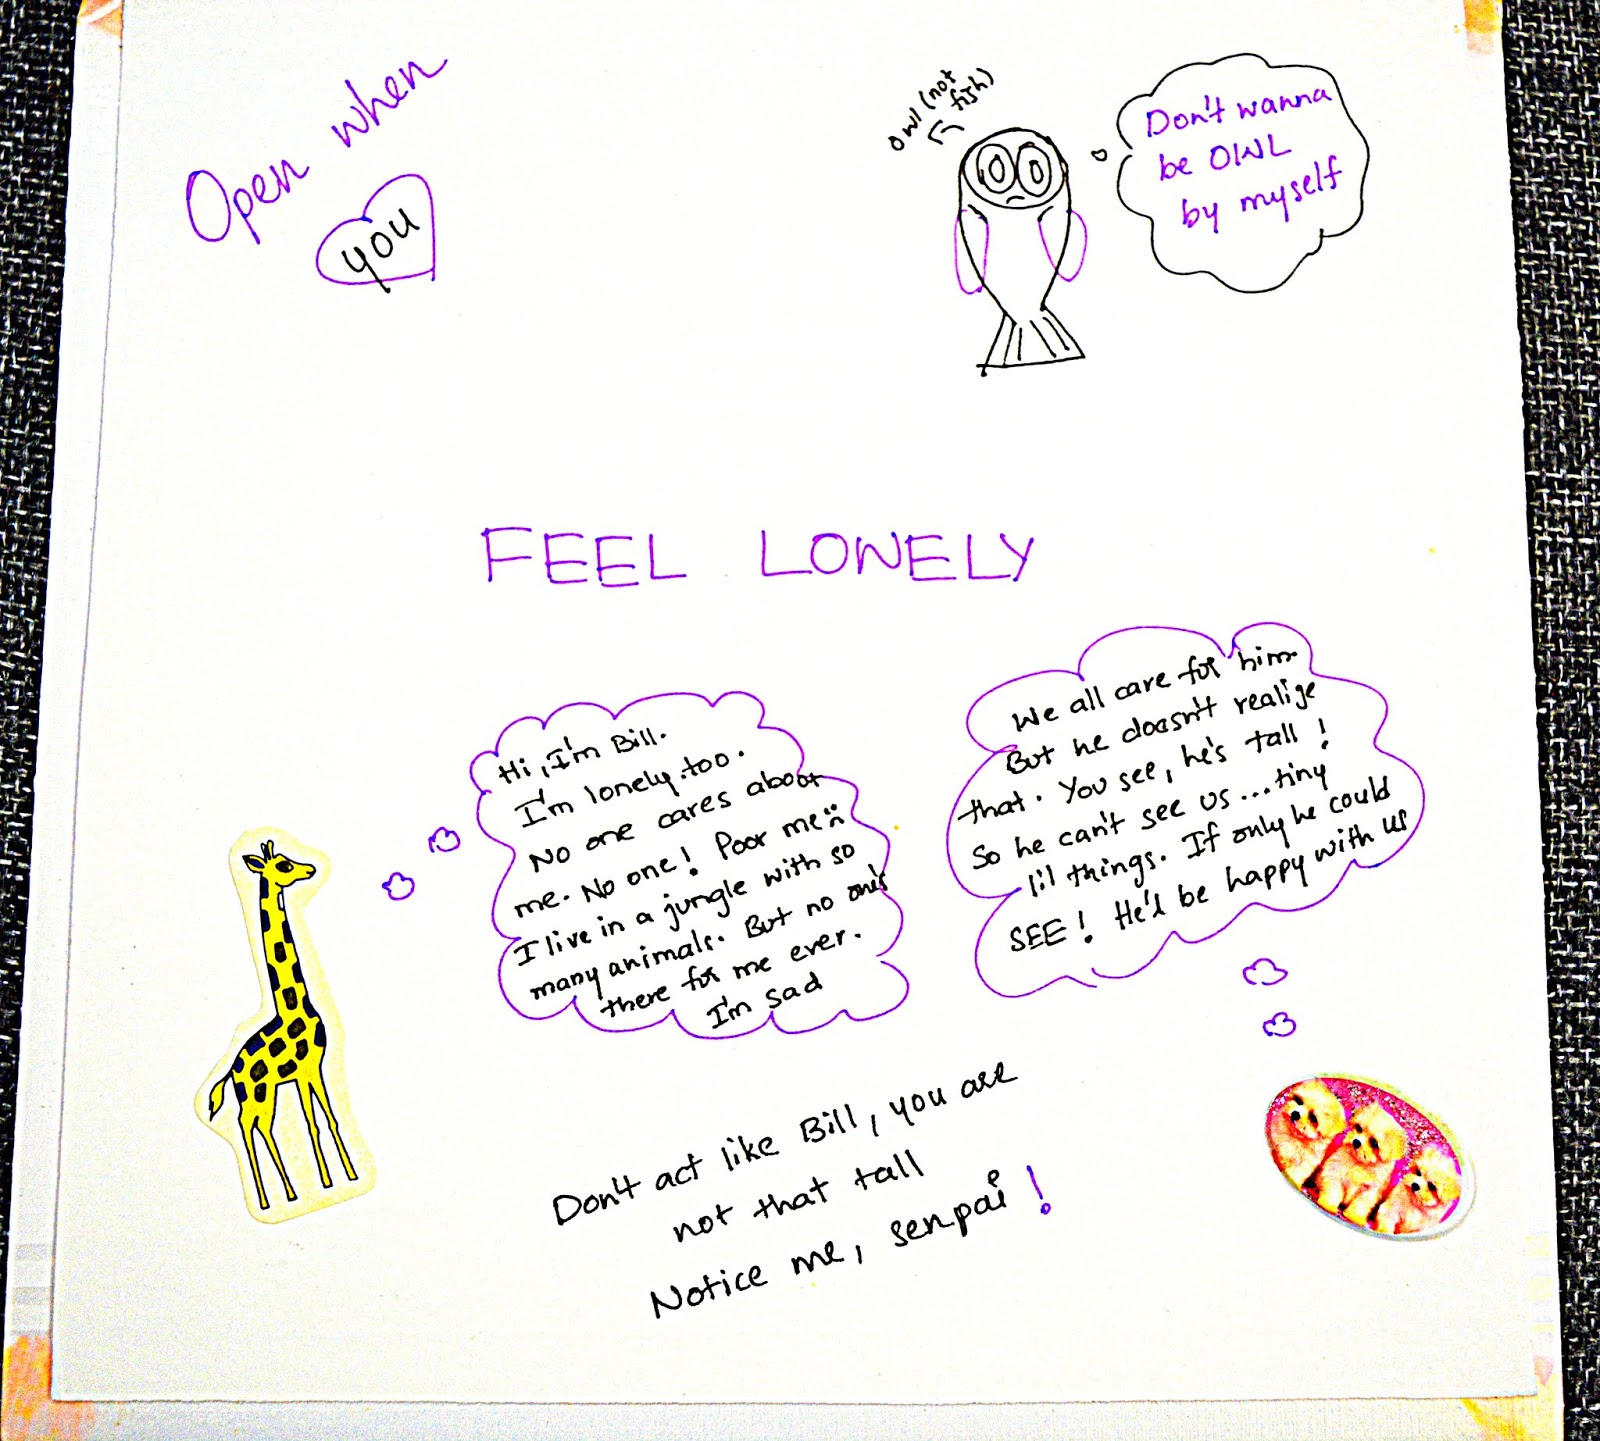 Open when
you
owl (not
fish)
Don't wanna
be OWL
by myself
FEEL LONELY
Hi, I'm Bill.
I'm lonely too.
No one cares about
me. No one! Poor me
I live in a jungle with so
many animals. But no one's
there for me ever.
I'm sad
We all care for him.
But he doesn't realize
that. You see, he's tall!
So he can't see us...tiny
lil things. If only he could
SEE! He'd be happy with us
Don't act like Bill, you are
not that tall
Notice me, senpai!